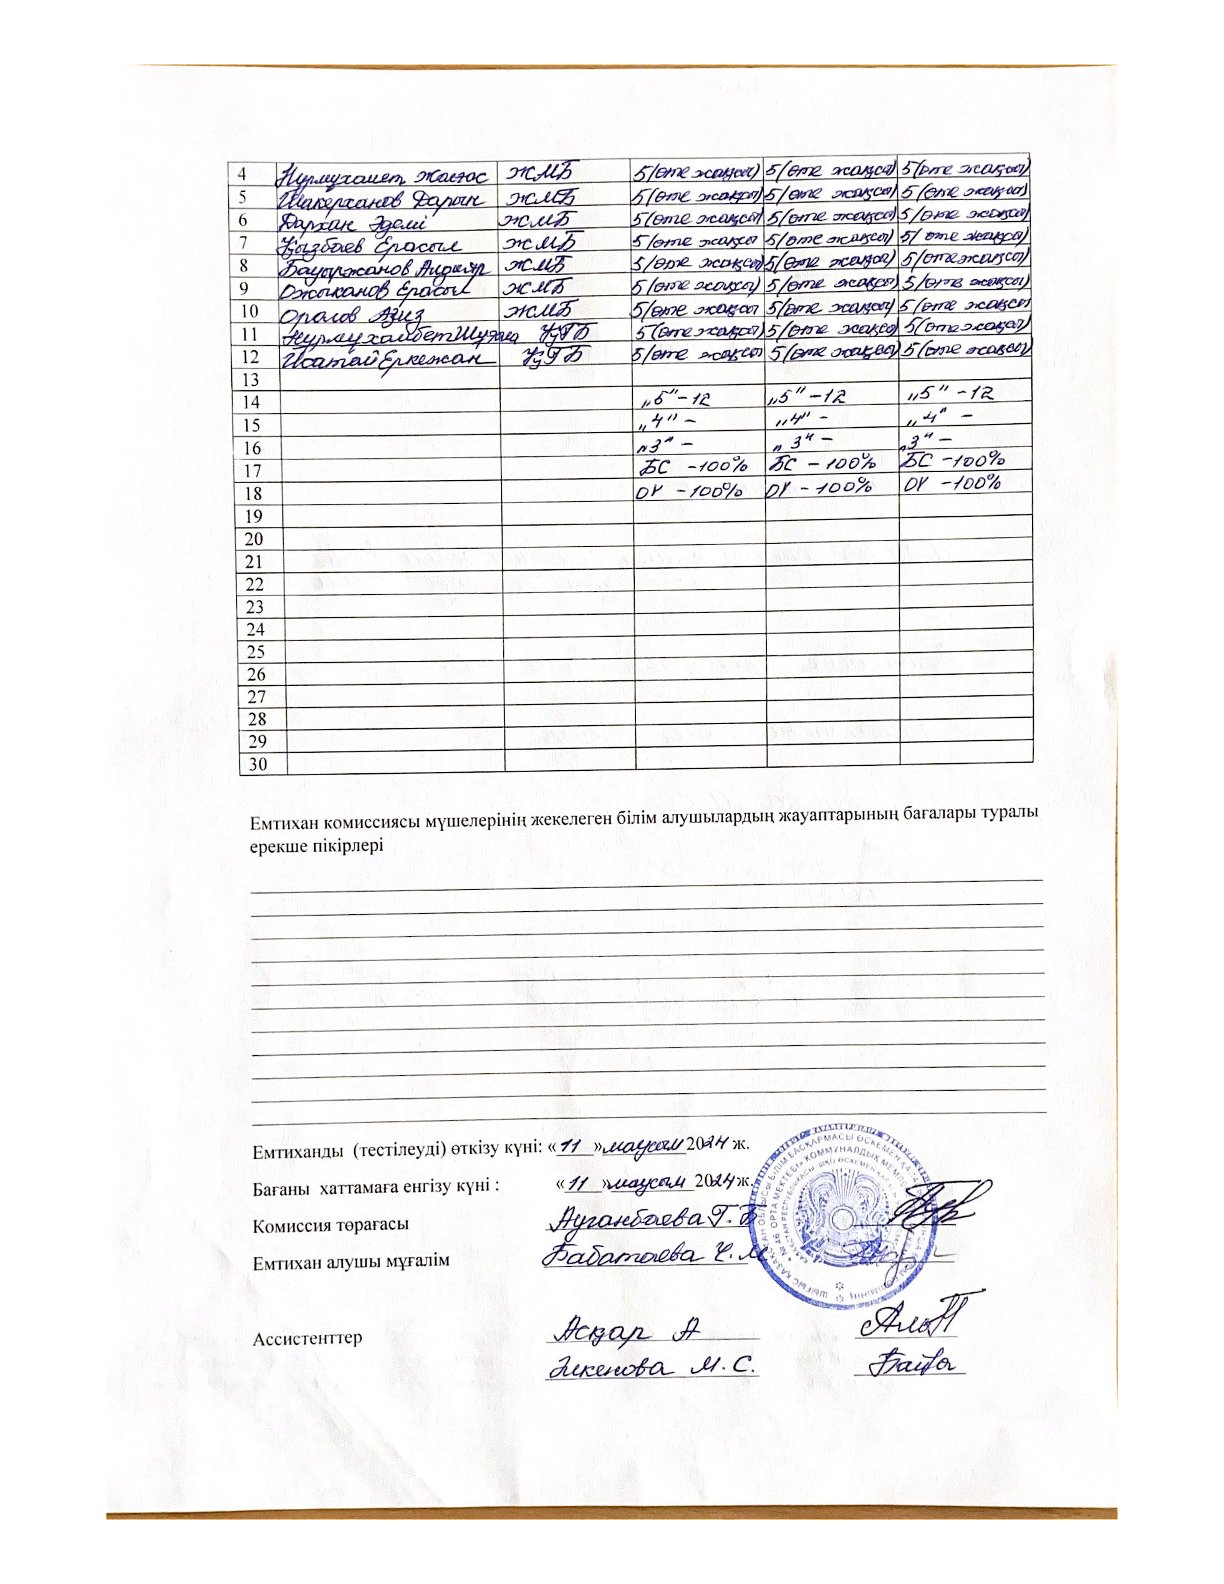 4 Нурмухамет Жастас ЖМБ 5(өте жақсы) 5(өте жақсы) 5(өте жақсы)
5 Шакерханов Дарын ЖМБ 5(өте жақсы) 5(өте жақсы) 5(өте жақсы)
6 Дархан Әделі ЖМБ 5(өте жақсы) 5(өте жақсы) 5(өте жақсы)
7 Қызбаев Ерасыл ЖМБ 5(өте жақсы 5(өте жақсы) 5(өте жақсы)
8 Бауыржанов Алдияр ЖМБ 5(өте жақсы) 5(өте жақсы) 5(өте жақсы)
9 Ожыканов Ерасыл ЖМБ 5(өте жақсы) 5(өте жақсы) 5(өте жақсы)
10 Оралов Азиз ЖМБ 5(өте жақсы 5(өте жақсы) 5(өте жақсы)
11 Нурмухамбет ҚГБ 5(өте жақсы) 5(өте жақсы 5(өте жақсы)
12 Исатай Еркежан ҚГБ 5(өте жақсы 5(өте жақсы) 5(өте жақсы)
13
14 „5" – 12 „5" – 12 „5" – 12
15 „4" – „4" – „4" –
16 „3" – „3" – „3" –
17 БС – 100% БС – 100% БС – 100%
18 ОҮ – 100% ОҮ – 100% ОҮ – 100%
19
20
21
22
23
24
25
26
27
28
29
30
Емтихан комиссиясы мүшелерінің жекелеген білім алушылардың жауаптарының бағалары туралы
ерекше пікірлері
Емтиханды (тестілеуді) өткізу күні: «11» маусым 2024 ж.
Бағаны хаттамаға енгізу күні : «11» маусым 2024 ж.
Комиссия төрағасы Ауганбаева Г.Б
Емтихан алушы мұғалім Бабатаева Ч.М
Ассистенттер Асқар А
Зикенова М.С.